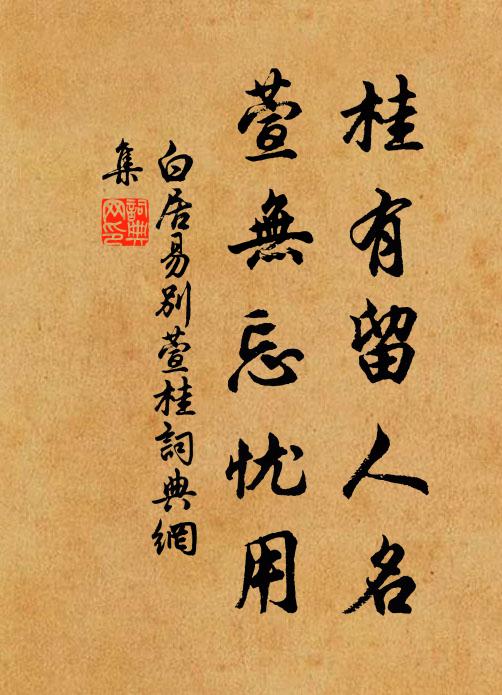 桂有留人名
萱無忘忧用
白居易别萱桂詞典網
集
詞典
网印